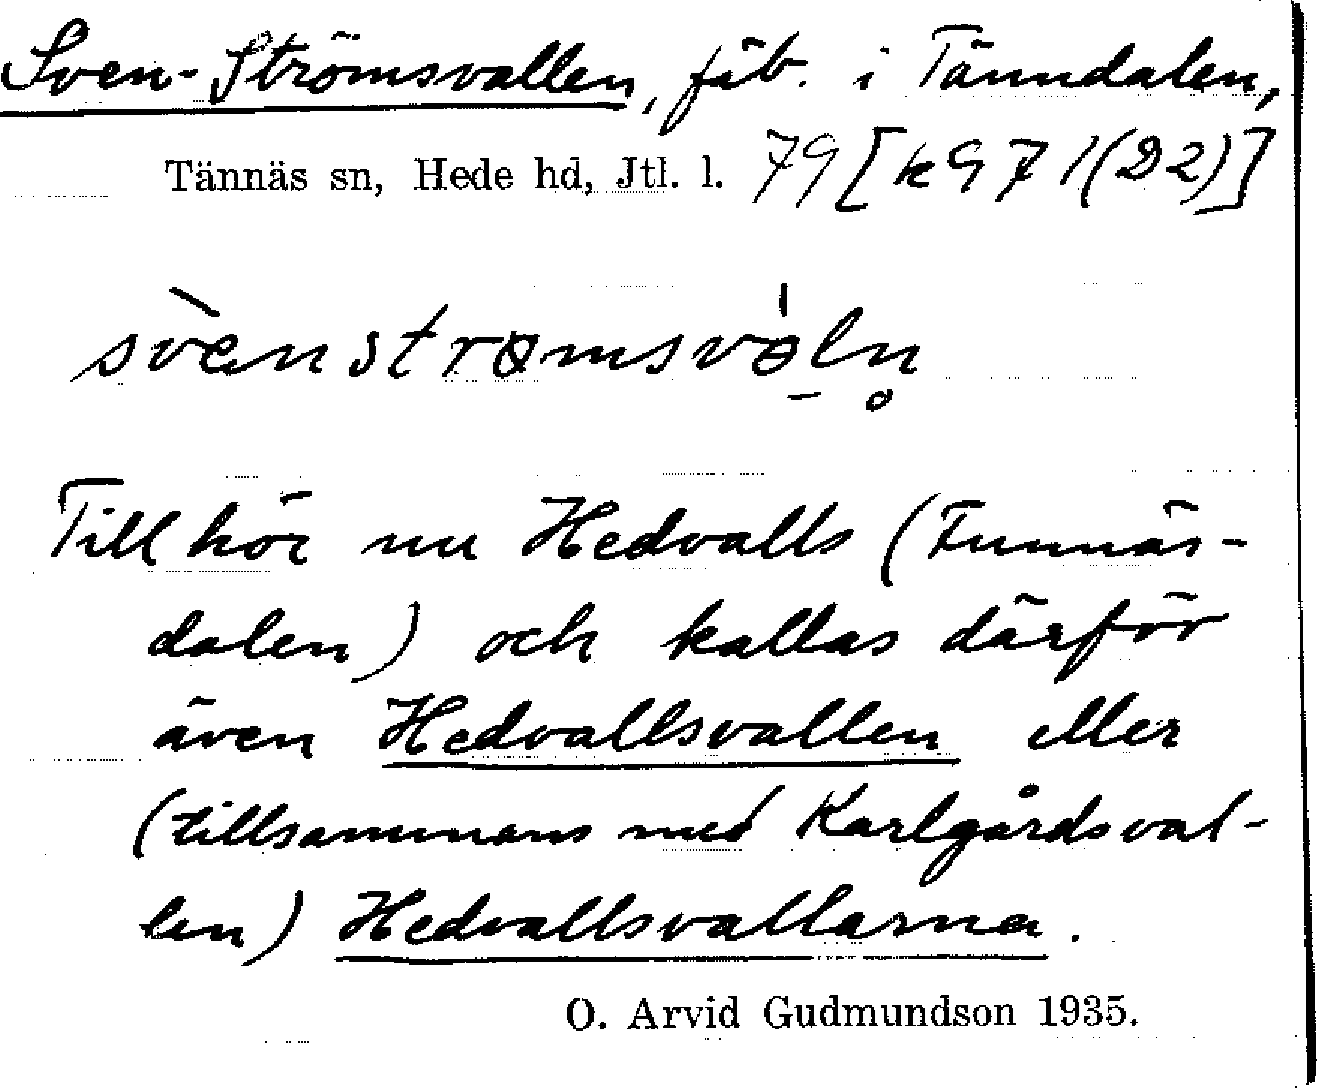 Sven-Strömsvallen, fäb. i Tänndalen,
Tännäs sn, Hede hd, Jtl. l. 79 [k 97 1(D2)]
svènstrømsvòl̥n̥
Tillhör nu Hedvalls (Funnäs-
dalen) och kallas därför
även Hedvallsvallen eller
(tillsammans med Karlgårdsval-
len) Hedvallsvallarna.
O. Arvid Gudmundson 1935.